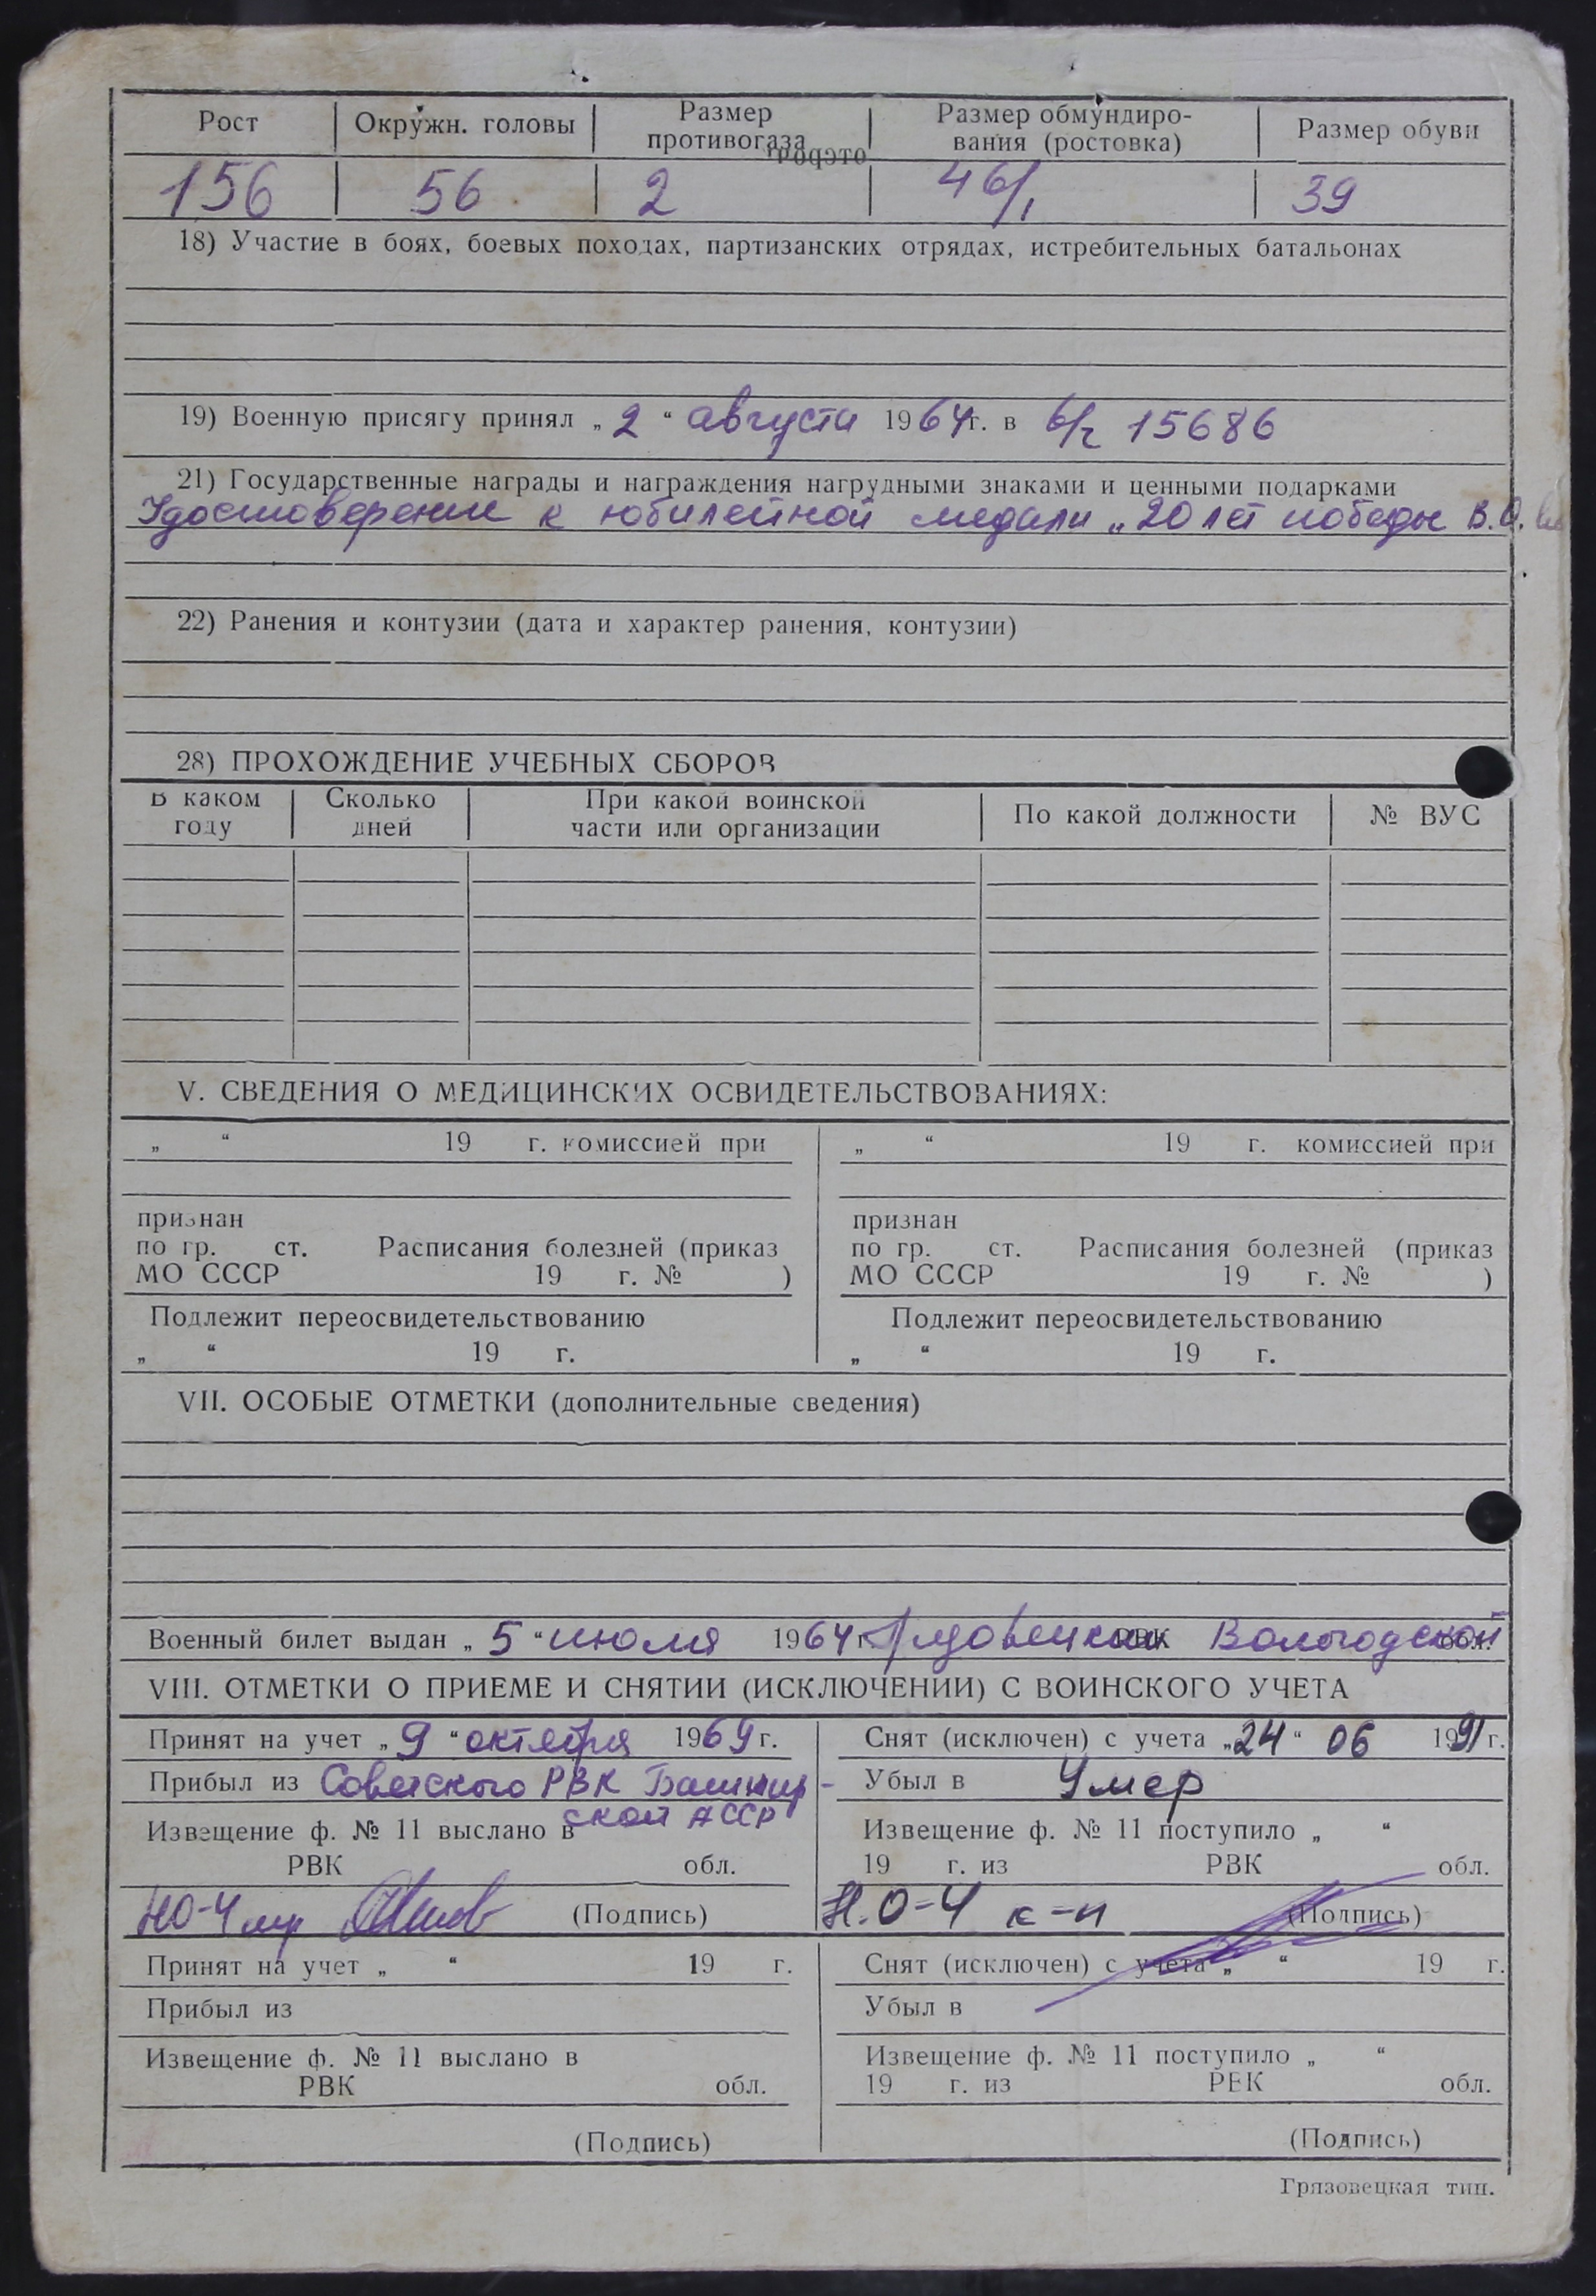 Рост Окружн. головы Размер противогаза Размер обмундиро-вания (ростовка) Размер обуви
156 56 2 46/1 39
18) Участие в боях, боевых походах, партизанских отрядах, истребительных батальонах
19) Военную присягу принял „ 2 “ августа 1964г. в в/ч 15686
21) Государственные награды и награждения нагрудными знаками и ценными подарками
Удостоверение к юбилейной медали „20 лет победы В.О.
22) Ранения и контузии (дата и характер ранения, контузии)
28) ПРОХОЖДЕНИЕ УЧЕБНЫХ СБОРОВ
В каком году Сколько дней При какой воинской части или организации По какой должности № ВУС
V. СВЕДЕНИЯ О МЕДИЦИНСКИХ ОСВИДЕТЕЛЬСТВОВАНИЯХ:
„ “ 19 г. комиссией при „ “ 19 г. комиссией при
признан признан
по гр. ст. Расписания болезней (приказ по гр. ст. Расписания болезней (приказ
МО СССР 19 г. № ) МО СССР 19 г. № )
Подлежит переосвидетельствованию Подлежит переосвидетельствованию
„ “ 19 г. „ “ 19 г.
VII. ОСОБЫЕ ОТМЕТКИ (дополнительные сведения)
Военный билет выдан „ 5 “ июля 1964 г. РВК Вологодской обл.
VIII. ОТМЕТКИ О ПРИЕМЕ И СНЯТИИ (ИСКЛЮЧЕНИИ) С ВОИНСКОГО УЧЕТА
Принят на учет „ 9 “ октября 1969 г. Снят (исключен) с учета „24“ 06 1991г.
Прибыл из Советского РВК Башкир- Убыл в Умер
ской АССР
Извещение ф. № 11 выслано в Извещение ф. № 11 поступило „ “
РВК обл. 19 г. из РВК обл.
НО-4 (Подпись) Н.О-4 к-н (Подпись)
Принят на учет „ “ 19 г. Снят (исключен) с учета „ “ 19 г.
Прибыл из Убыл в
Извещение ф. № 11 выслано в Извещение ф. № 11 поступило „ “
РВК обл. 19 г. из РВК обл.
(Подпись) (Подпись)
Грязовецкая тип.